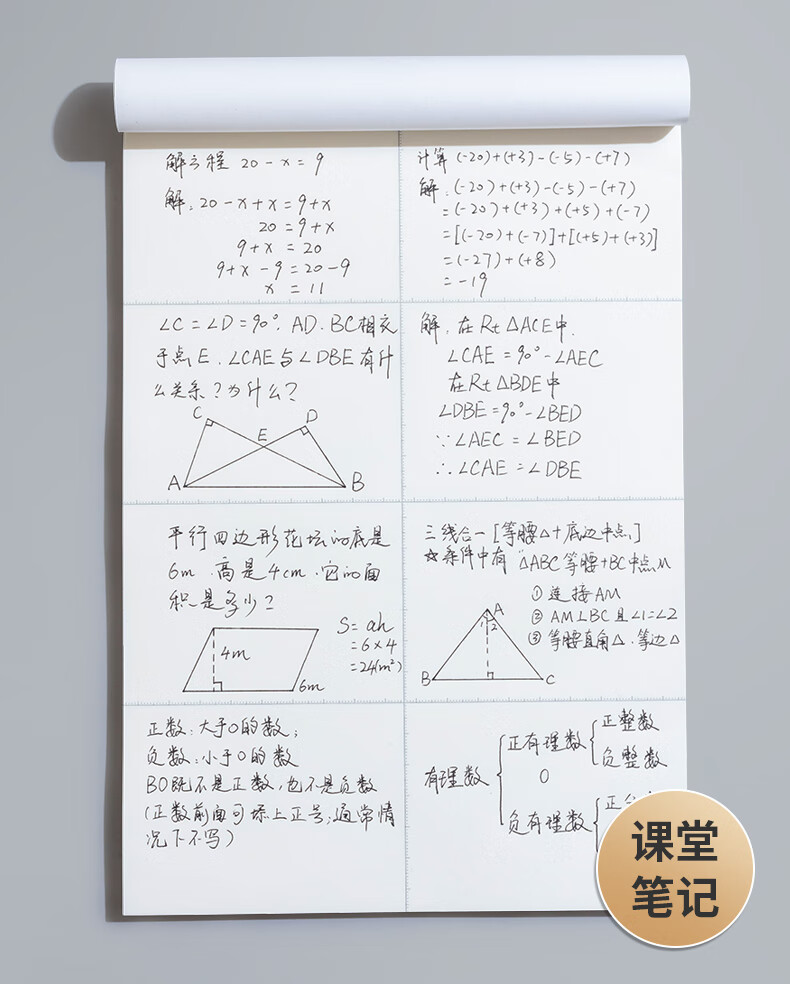 解方程 20-x=9
解:20-x+x=9+x
20=9+x
9+x=20
9+x-9=20-9
x=11
计算(-20)+(+3)-(-5)-(+7)
解:(-20)+(+3)-(-5)-(+7)
=(-20)+(+3)+(+5)+(-7)
=[(-20)+(-7)]+[(+5)+(+3)]
=(-27)+(+8)
=-19
∠C=∠D=90°,AD.BC相交
于点E.∠CAE与∠DBE有什
么关系?为什么?
C
D
E
A
B
解,在Rt△ACE中.
∠CAE=90°-∠AEC
在Rt△BDE中
∠DBE=90°-∠BED
∵∠AEC=∠BED
∴∠CAE=∠DBE
平行四边形花坛的底是
6m.高是4cm.它的面
积是多少?
S=ah
=6×4
=24(m²)
4m
6m
三线合一[等腰△+底边中点]
☆条件中有"△ABC等腰+BC中点M
①连接AM
②AM⊥BC且∠1=∠2
③等腰直角△.等边△
A
1
2
B
C
正数:大于0的数;
负数:小于0的数
BO既不是正数,也不是负数
(正数前面可添上正号;通常情
况下不写)
有理数
正有理数
正整数
负整数
0
负有理数
正
课堂
笔记